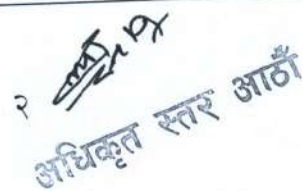 २
अधिकृत स्तर आठौँ